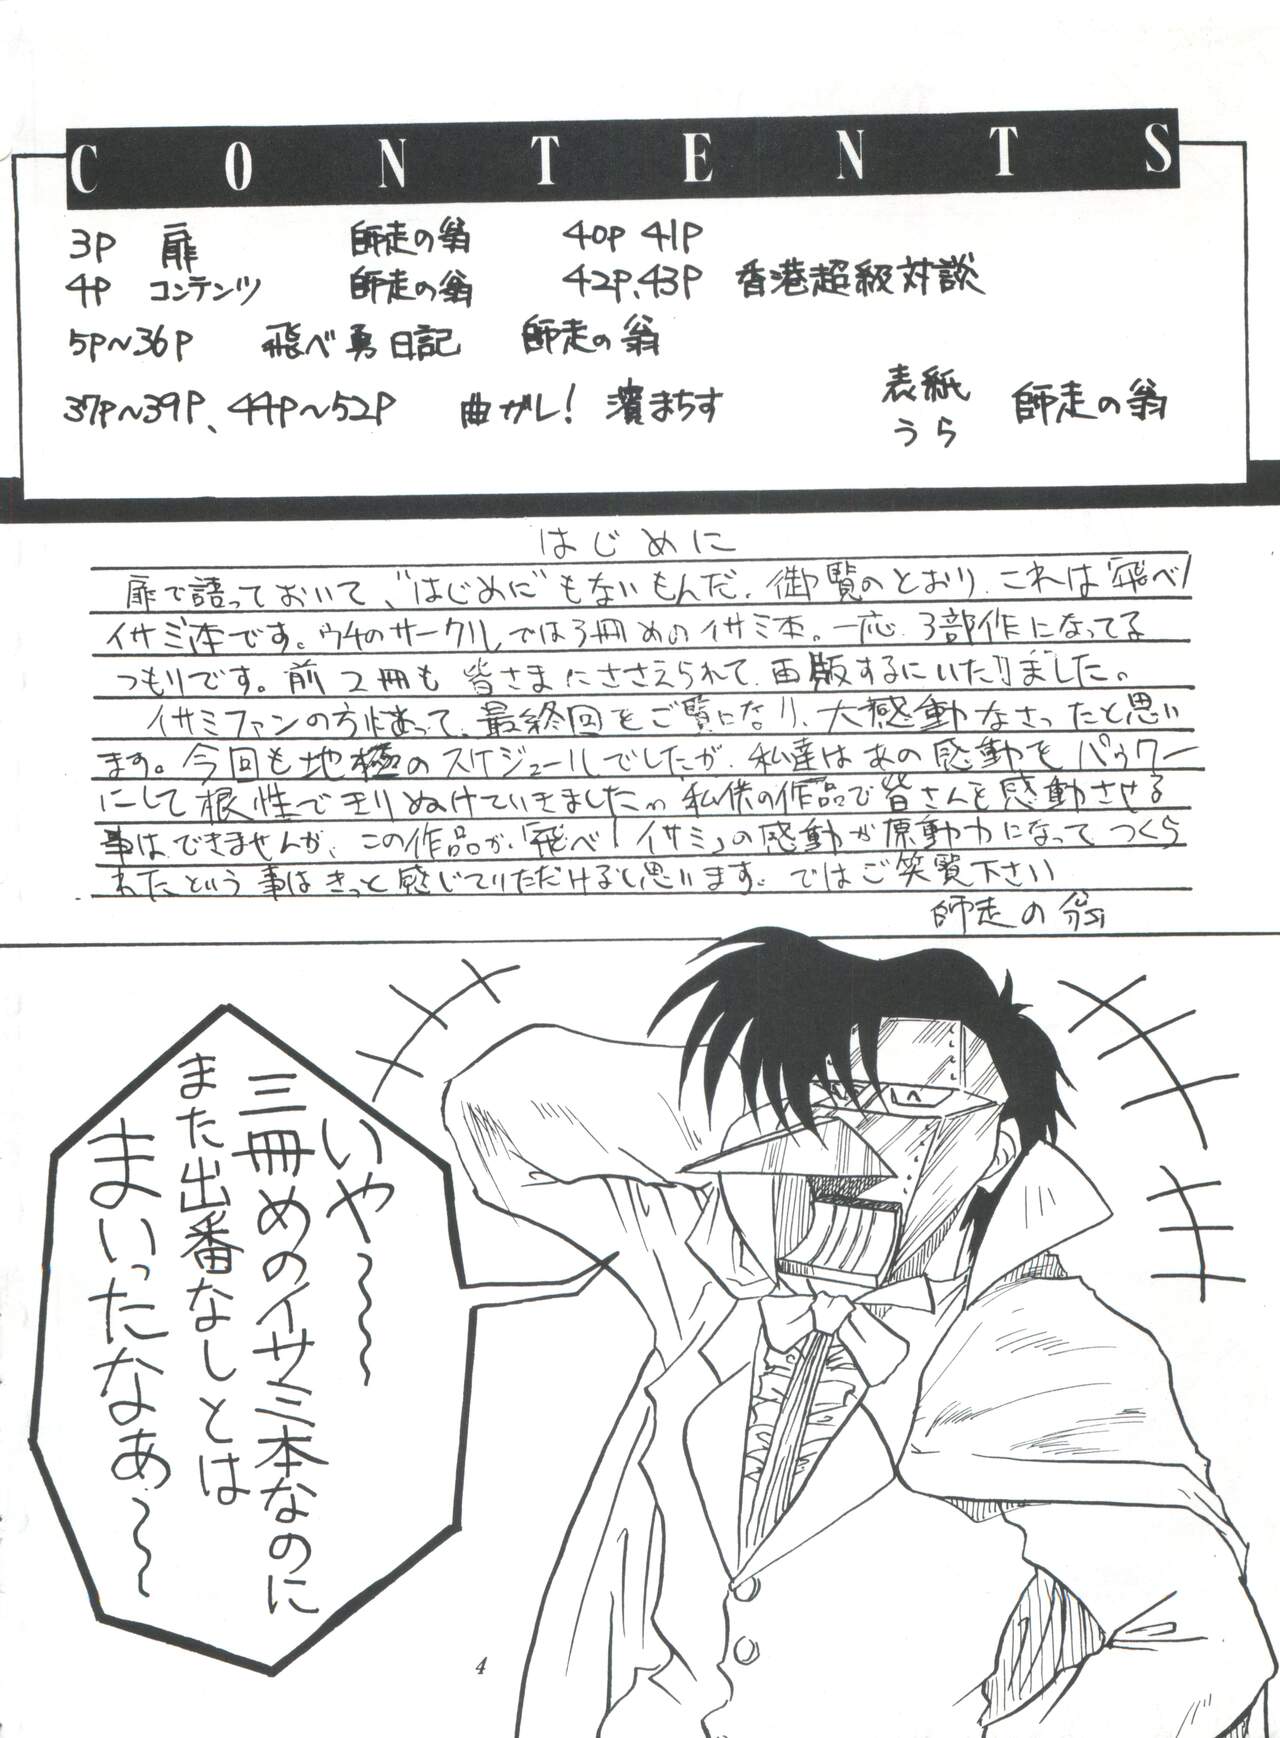 CONTENTS
3P 扉 師走の翁
4P コンテンツ 師走の翁
5P～36P 飛べ勇日記 師走の翁
37P～39P、44P～52P 曲がレ! 濱まちす
40P 41P
42P、43P 香港超級対談
表紙
うら 師走の翁
はじめに
扉で語っておいて、"はじめに"もないもんだ。御覧のとおり、これは「飛べ!
イサミ本です。ウチのサークルでは3冊めのイサミ本。一応、3部作になってる
つもりです。前2冊も皆さまにささえられて、再販するにいたりました。
イサミファンの方にあって、最終回をご覧になり、大感動なさったと思い
ます。今回も地極のスケジュールでしたが、私達はあの感動をパゥワー
にして根性できりぬけていきました。私供の作品で皆さんを感動させる
事はできませんが、この作品が「飛べ!イサミ」の感動が原動力になって、つくら
れたという事はきっと感じていただけると思います。ではご笑覧下さい
師走の翁
いや～～～
三冊めのイサミ本なのに
また出番なしとは
まいったなあ～～
4